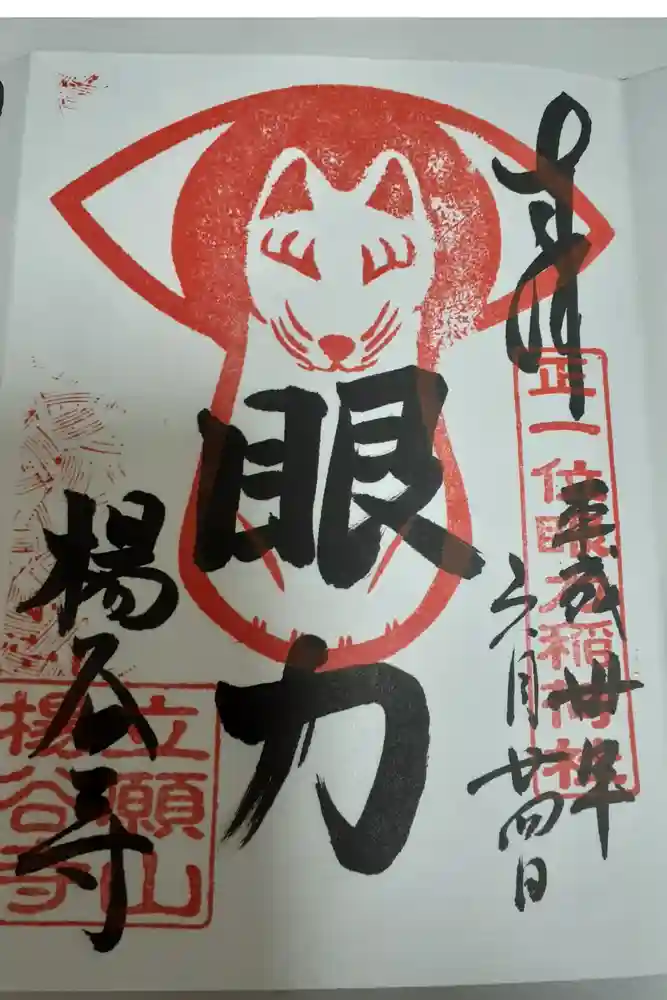 奉拝
正一位眼力稲荷社
平成卅年
六月廿四日
眼力
楊谷寺
立願山
楊谷寺